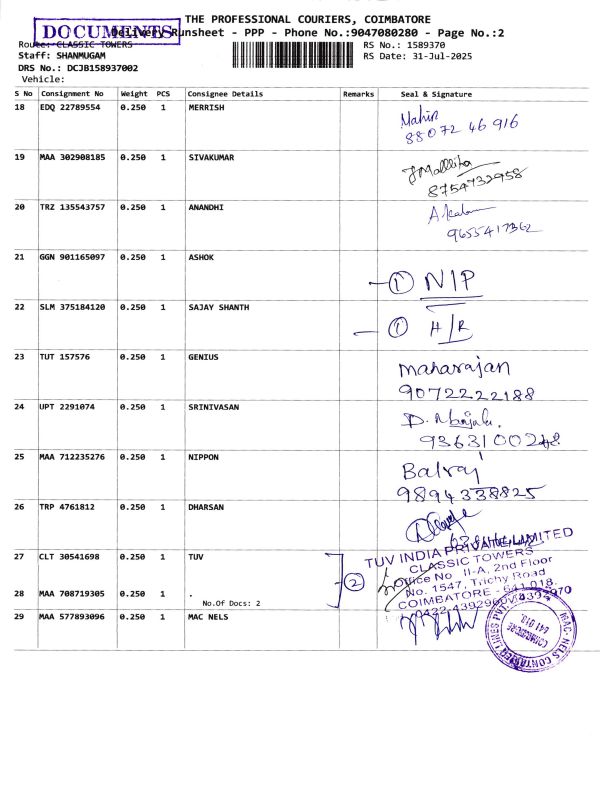 THE PROFESSIONAL COURIERS, COIMBATORE
DOCUMENTS
Delivery Runsheet - PPP - Phone No.:9047080280 - Page No.:2
Route: CLASSIC TOWERS
RS No.: 1589370
Staff: SHANMUGAM
RS Date: 31-Jul-2025
DRS No.: DCJB158937002
Vehicle:
S No Consignment No Weight PCS Consignee Details Remarks Seal & Signature
18 EDQ 22789554 0.250 1 MERRISH
Mahin
88072 46 916
19 MAA 302908185 0.250 1 SIVAKUMAR
J Mallika
8754732958
20 TRZ 135543757 0.250 1 ANANDHI
9655417362
21 GGN 901165097 0.250 1 ASHOK
① N/P
22 SLM 375184120 0.250 1 SAJAY SHANTH
① H/R
23 TUT 157576 0.250 1 GENIUS
Maharajan
9072222188
24 UPT 2291074 0.250 1 SRINIVASAN
D. Manjula.
9363100248
25 MAA 712235276 0.250 1 NIPPON
Balraj
9894338825
26 TRP 4761812 0.250 1 DHARSAN
27 CLT 30541698 0.250 1 TUV
②
TUV INDIA PRIVATE LIMITED
CLASSIC TOWERS
Office No. II-A, 2nd Floor
No. 1547, Trichy Road
COIMBATORE - 641 018.
28 MAA 708719305 0.250 1 .
No.Of Docs: 2
29 MAA 577893096 0.250 1 MAC NELS
MAC-NELS CONTAINER LINES PVT.
COIMBATORE
641 018.